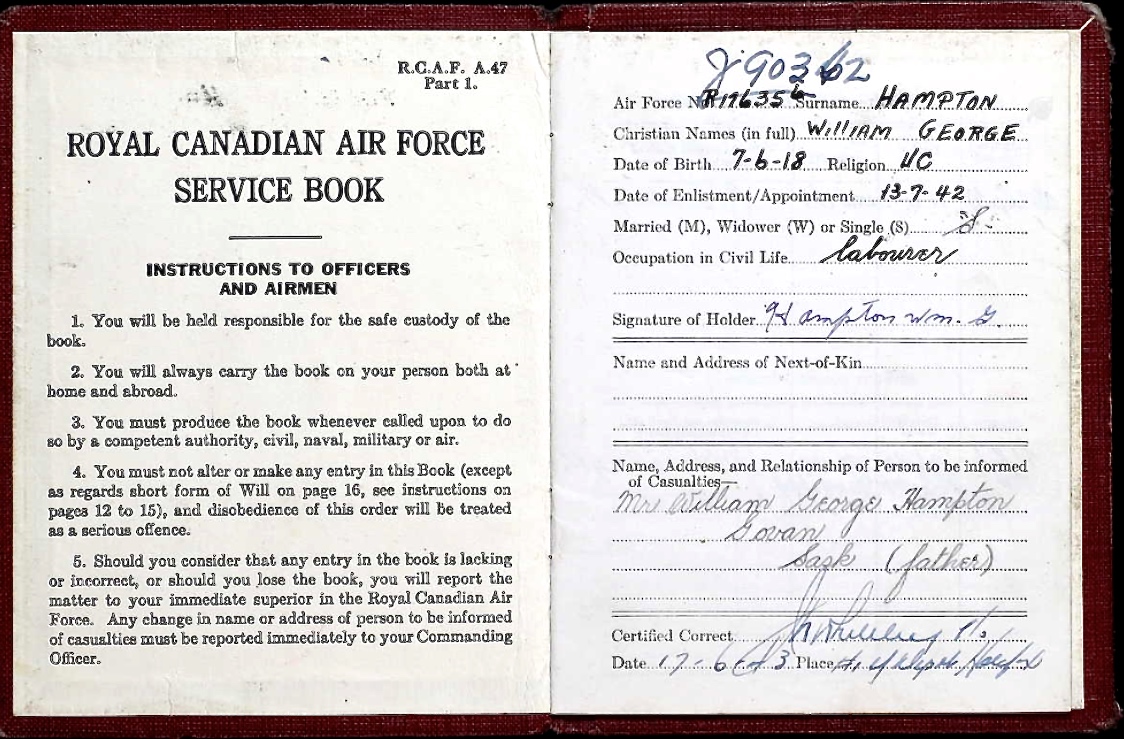 R.C.A.F. A.47
Part 1.
ROYAL CANADIAN AIR FORCE
SERVICE BOOK
INSTRUCTIONS TO OFFICERS
AND AIRMEN
1. You will be held responsible for the safe custody of the
book.
2. You will always carry the book on your person both at
home and abroad.
3. You must produce the book whenever called upon to do
so by a competent authority, civil, naval, military or air.
4. You must not alter or make any entry in this Book (except
as regards short form of Will on page 16, see instructions on
pages 12 to 15), and disobedience of this order will be treated
as a serious offence.
5. Should you consider that any entry in the book is lacking
or incorrect, or should you lose the book, you will report the
matter to your immediate superior in the Royal Canadian Air
Force. Any change in name or address of person to be informed
of casualties must be reported immediately to your Commanding
Officer.
Air Force No. R176356 Surname HAMPTON
Christian Names (in full) WILLIAM GEORGE
Date of Birth 7-6-18 Religion UC
Date of Enlistment/Appointment 13-7-42
Married (M), Widower (W) or Single (S) S.
Occupation in Civil Life labourer
Signature of Holder Hampton Wm. G.
Name and Address of Next-of-Kin
Name, Address, and Relationship of Person to be informed
of Casualties—
Mr William George Hampton
Govan
Sask (father)
Certified Correct
Date 17-6-43 Place